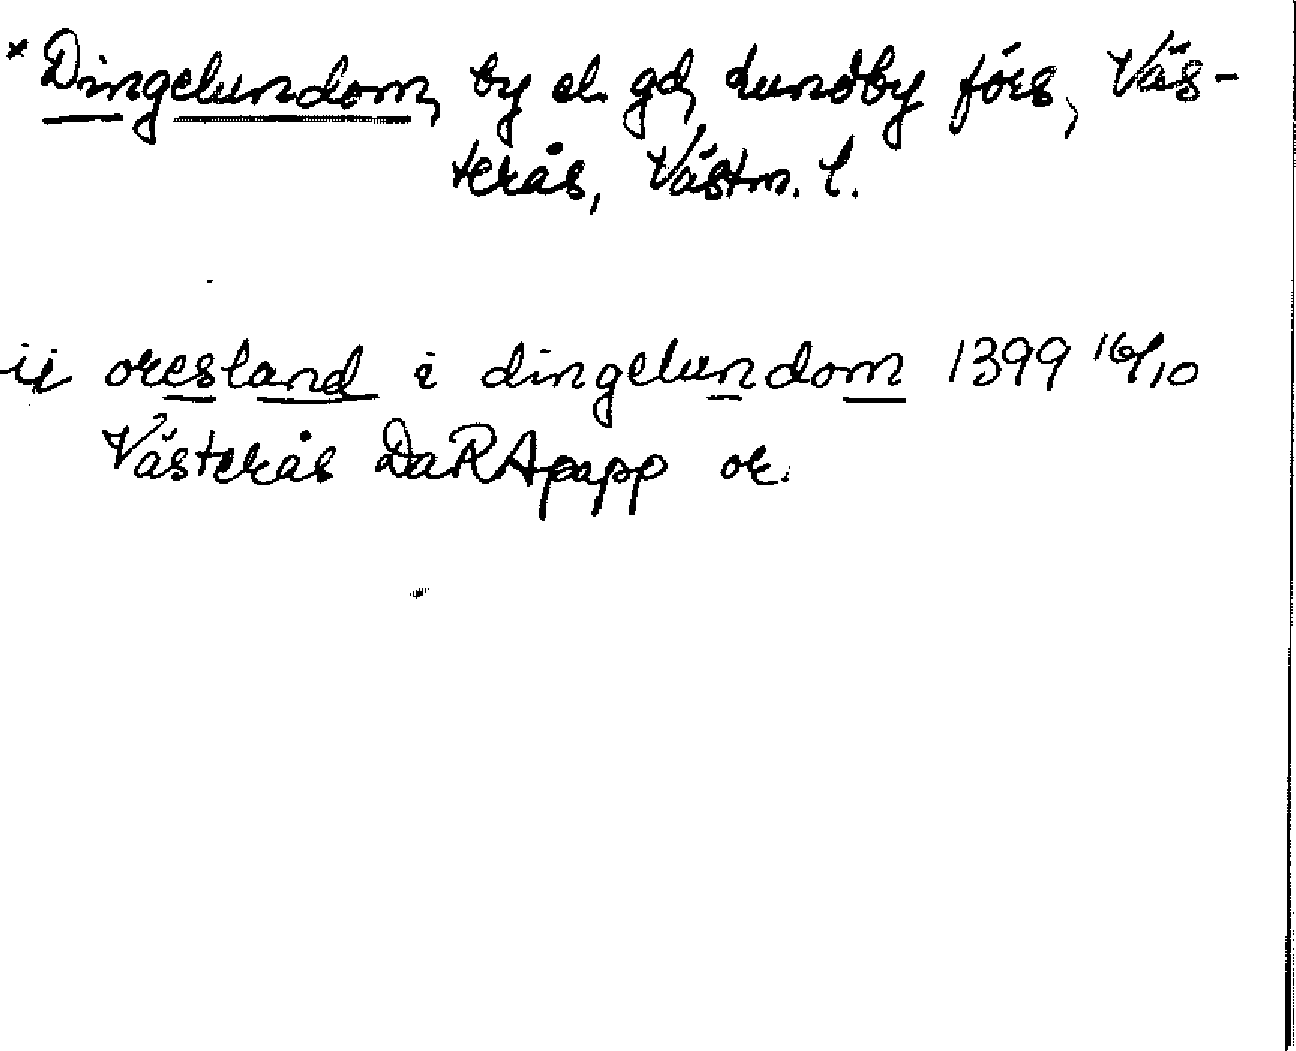 *Dingelundom, by el. gd, Lundby förs, Väs-
terås, Västm. l.
ij oresland i dingelundom 1399 16/10
Västerås DaRApapp or.